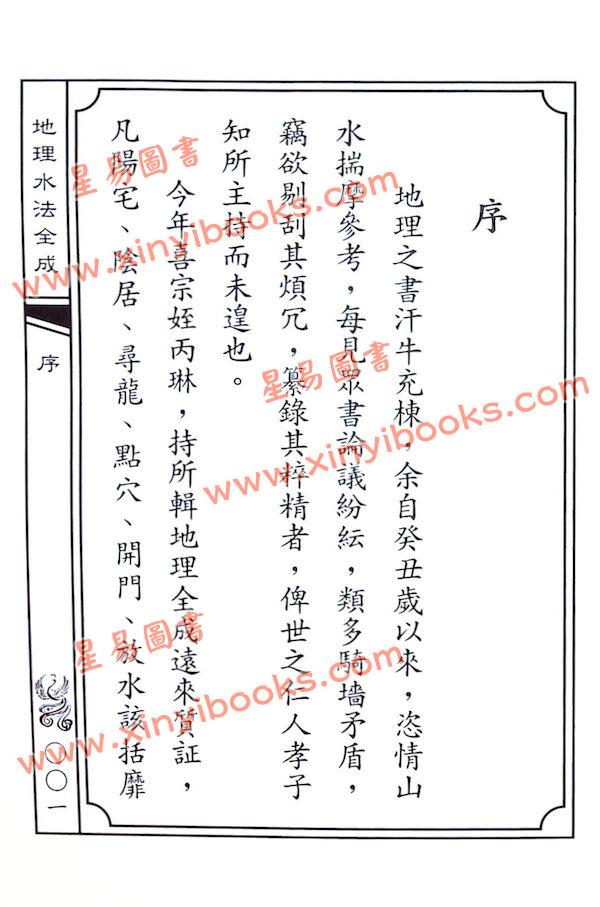 序
地理之書汗牛充棟，余自癸丑歲以來，恣情山
水揣摩參考，每見眾書論議紛紜，類多騎墻矛盾，
竊欲剔刮其煩冗，纂錄其粹精者，俾世之仁人孝子
知所主持而未遑也。
今年喜宗姪丙琳，持所輯地理全成遠來質証，
凡陽宅、陰居、尋龍、點穴、開門、放水該括靡
地理水法全成
序
〇〇一
星易圖書
www.xinyibooks.com
星易圖書
www.xinyibooks.com
星易圖書
www.xinyibooks.com